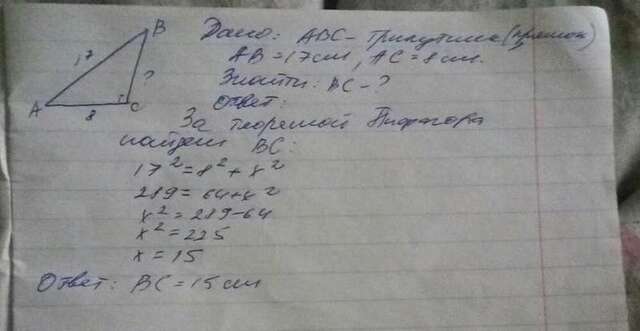 B
17
?
A
8
C
Дано: ABC - трикутник (прямок)
AB = 17 см, AC = 8 см.
Знайти: BC - ?
Ответ:
За теоремой Пифагора
найдем BC:
17² = 8² + x²
289 = 64 + x²
x² = 289 - 64
x² = 225
x = 15
Ответ: BC = 15 см